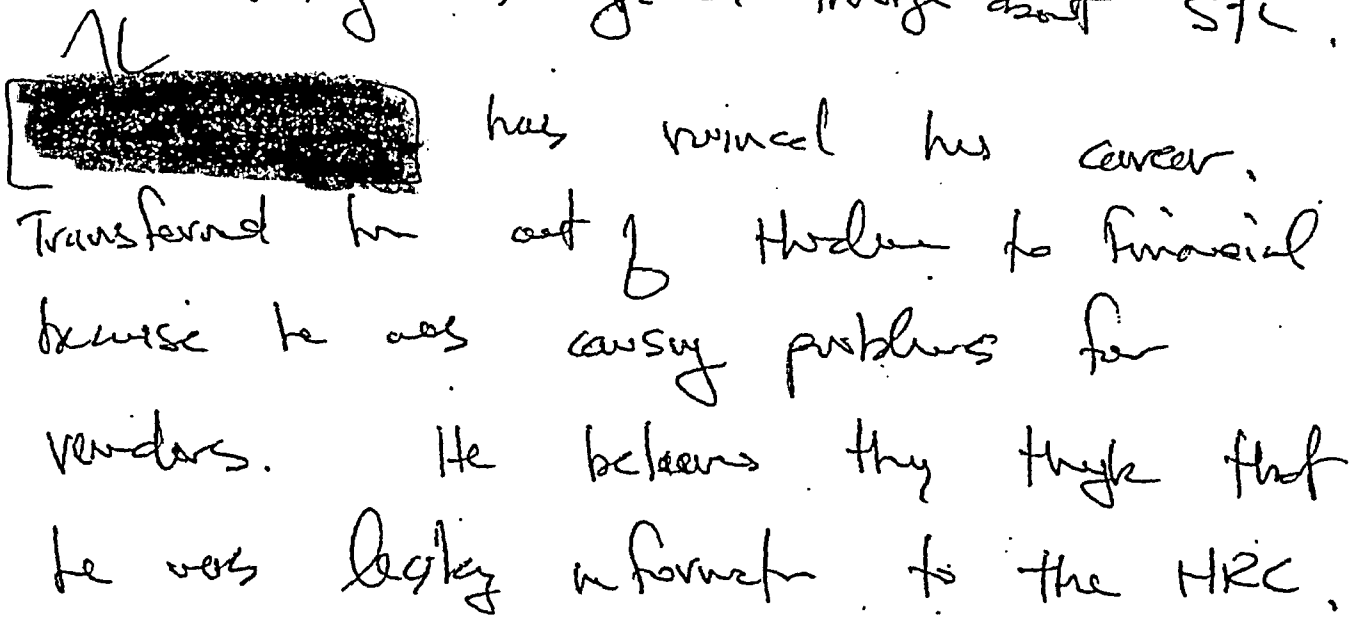 about
has ruined his career.
Transferred him out of to Financial
because he was causing problems for
vendors. He believes they think that
he was leaking information to the HRC.